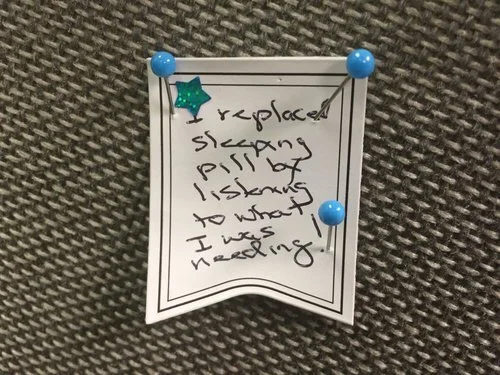 I replaced
sleeping
pill by
listening
to what
I was
needing!